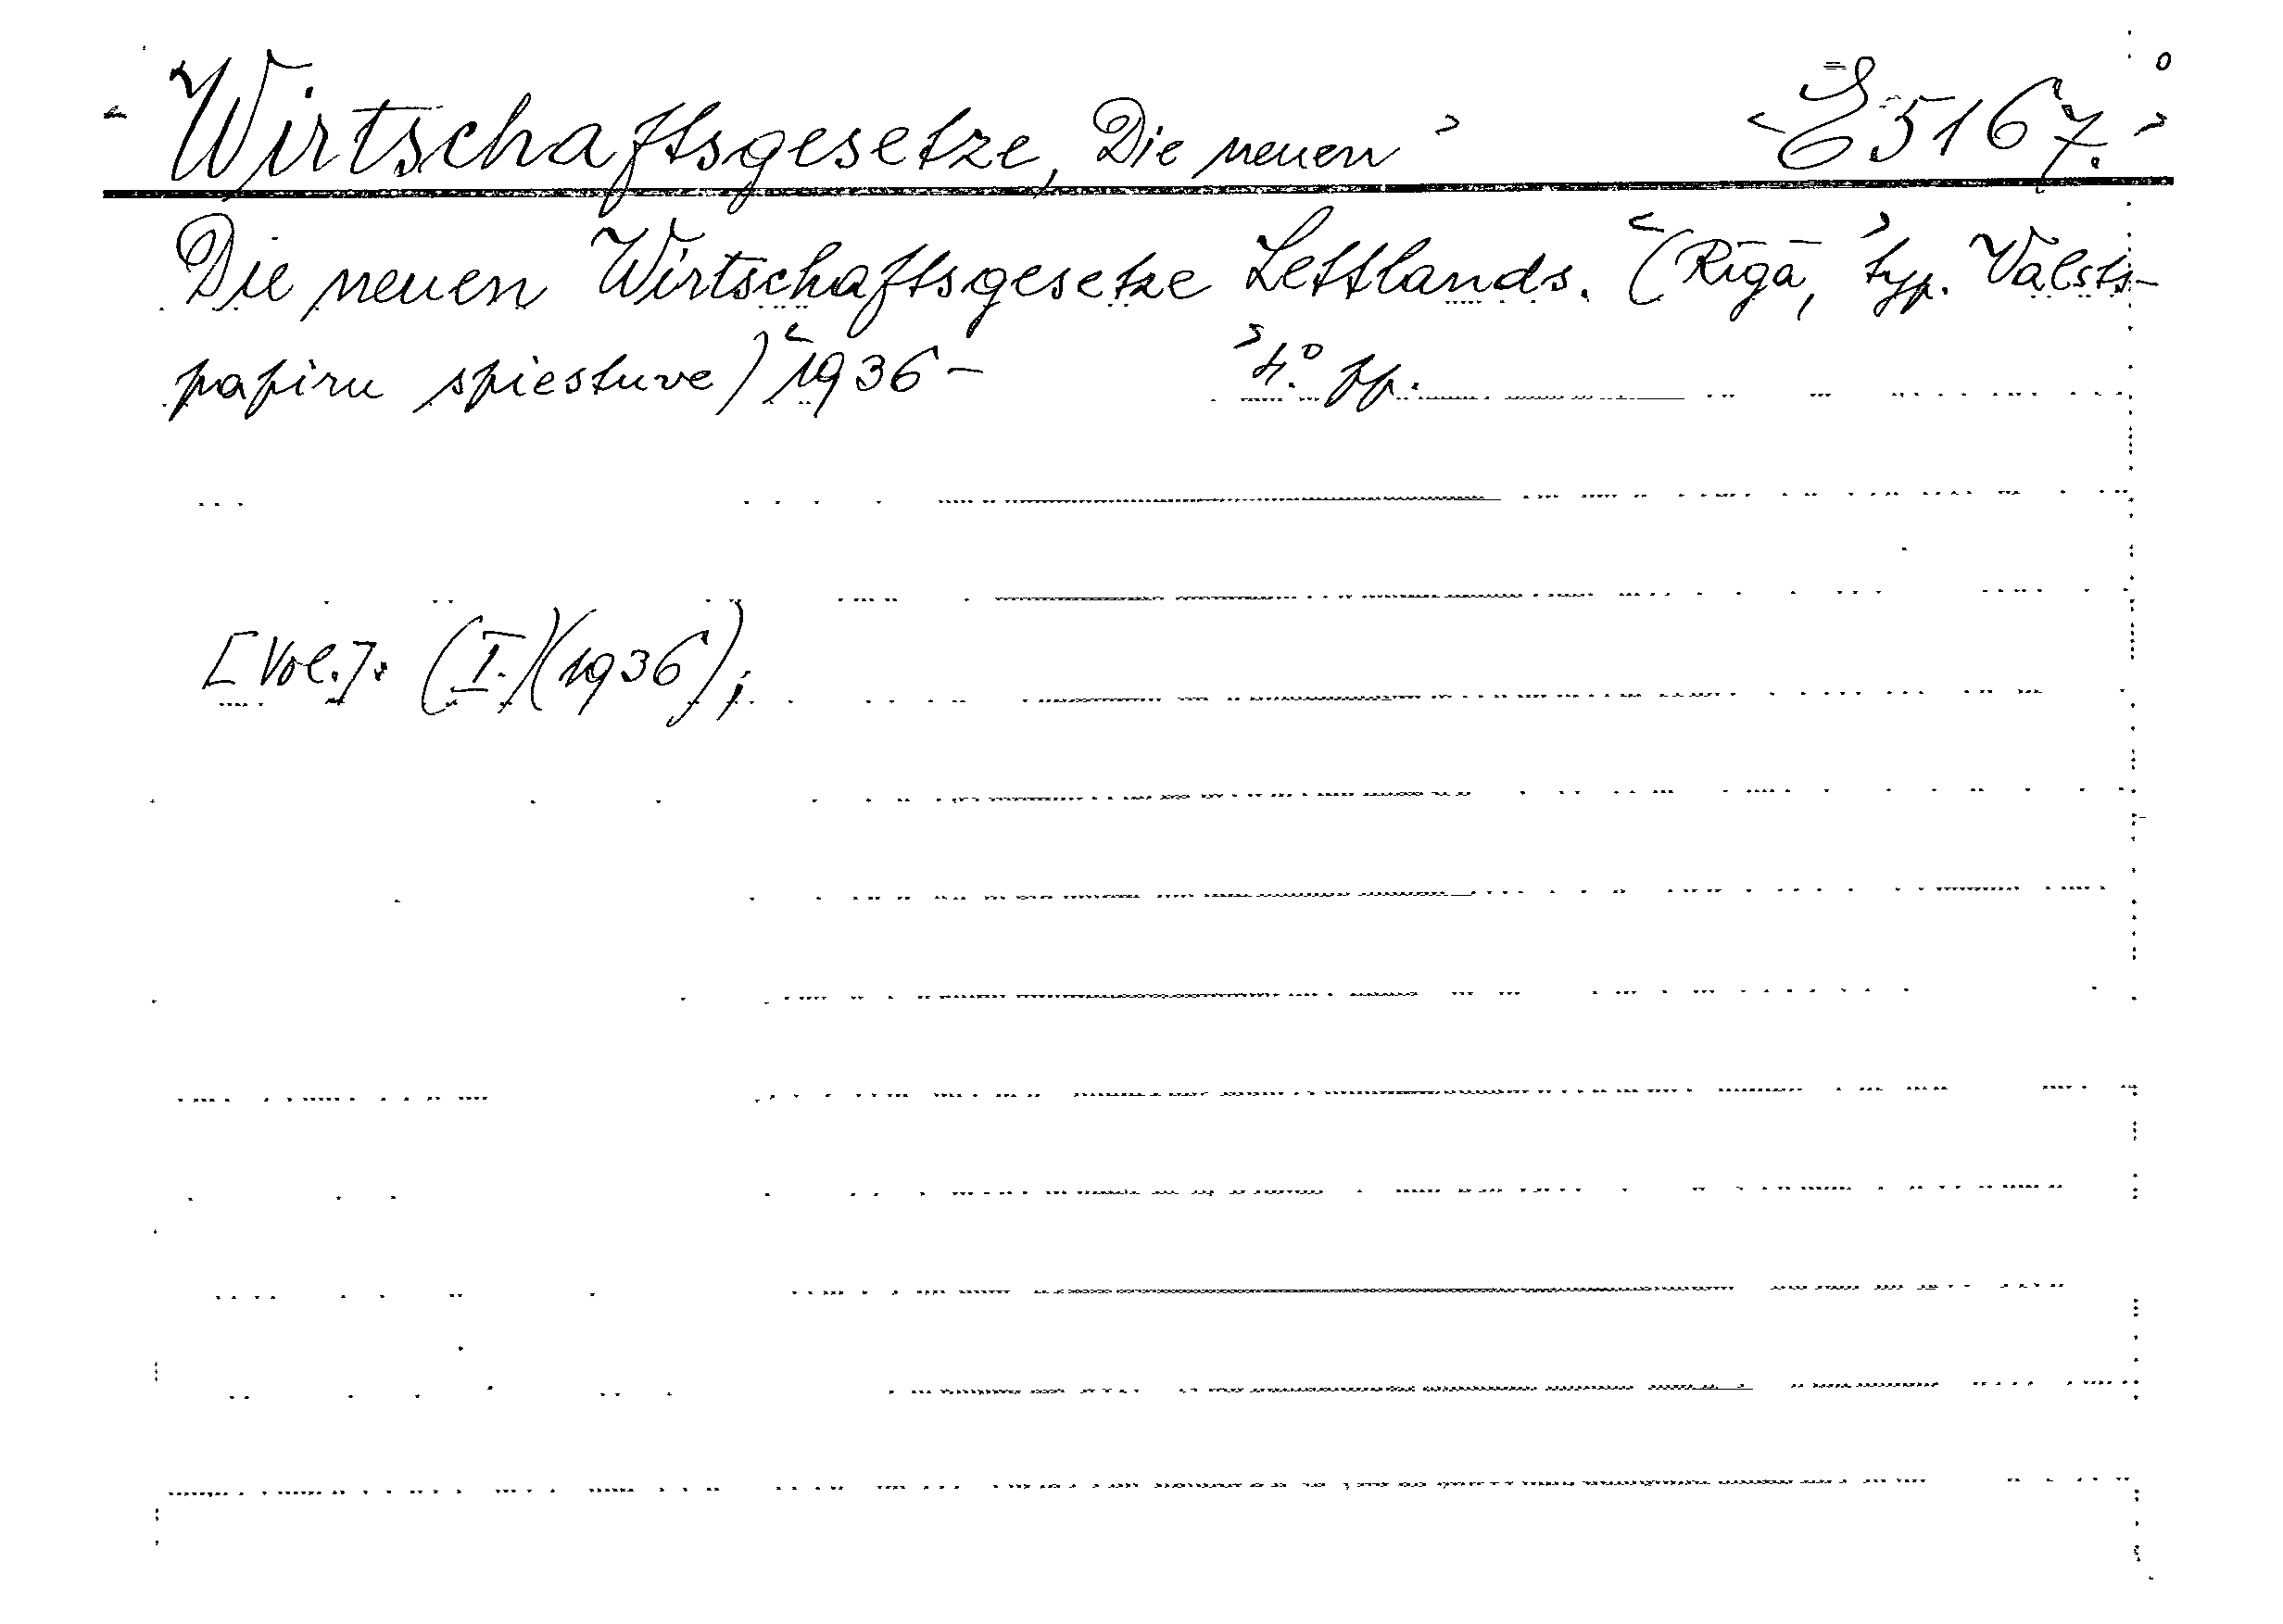 Wirtschaftsgesetze, Die neuen > < E 5167. >
Die neuen Wirtschaftsgesetze Lettlands. <(Rīgā,> typ. Valsts-
papiru spiestuve) <1936 – > 4.° pp.
[Vol.]: (I.)(1936);